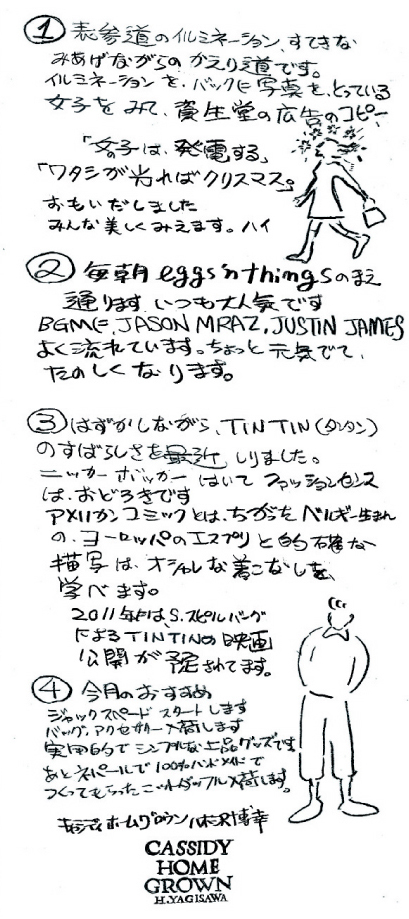 ① 表参道のイルミネーション、すてきな
みあげながらの かえり道です。
イルミネーションを、バックに写真を、とっている
女子をみて、資生堂の広告のコピー、
「女子は、発電する」
「ワタシが光ればクリスマス。」
おもいだしました
みんな美しくみえます。ハイ
② 毎朝 eggs'n thingsのまえ
通ります いつも大人気です
BGMに、JASON MRAZ, JUSTIN JAMES
よく流れています。ちょっと元気でて、
たのしくなります。
③ はずかしながら、TINTIN(タンタン)
のすばらしさを最近 しりました。
ニッカーボッカー はいて ファッションセンス
は、おどろきです
アメリカンコミックとは、ちがったベルギー生まれ
の、ヨーロッパのエスプリと的確な
描写は、オシャレな着こなしを、
学べます。
2011年は、S.スピルバーグ
によるTINTINの映画
公開が予定されてます。
④ 今月のおすすめ
ジャックスペード スタートします
バッグ、アクセサリー入荷します
実用的で シンプルな上品グッズです
あとネパールで 100%ハンドメイドで
つくってもらったニットダッフル入荷します。
キャシディホームグロウン 八木沢博幸
CASSIDY
HOME
GROWN
H.YAGISAWA